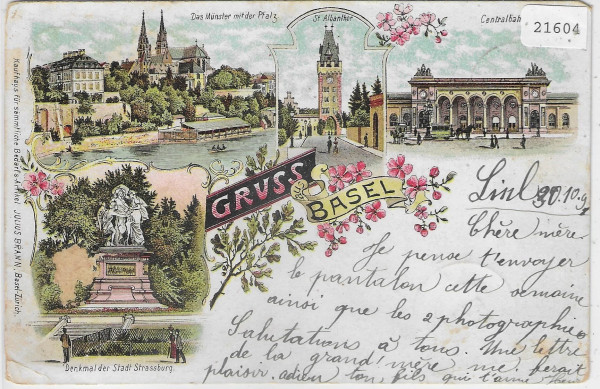 Das Münster mit der Pfalz.
St Albanthor
Centralbah
21604
Kaufhaus für sämmtliche Bedarfs-Artikel JULIUS BRANN, Basel-Zürich.
GRUSS
BASEL
20.10.9
Chère mère.
Je pense t'envoyer
le pantalon cette semaine
ainsi que les 2 photographies
Salutations à tous. Une lettre
de la grand'mère me ferait
plaisir. adieu ton fils qui t'aime
Denkmal der Stadt Strassburg.